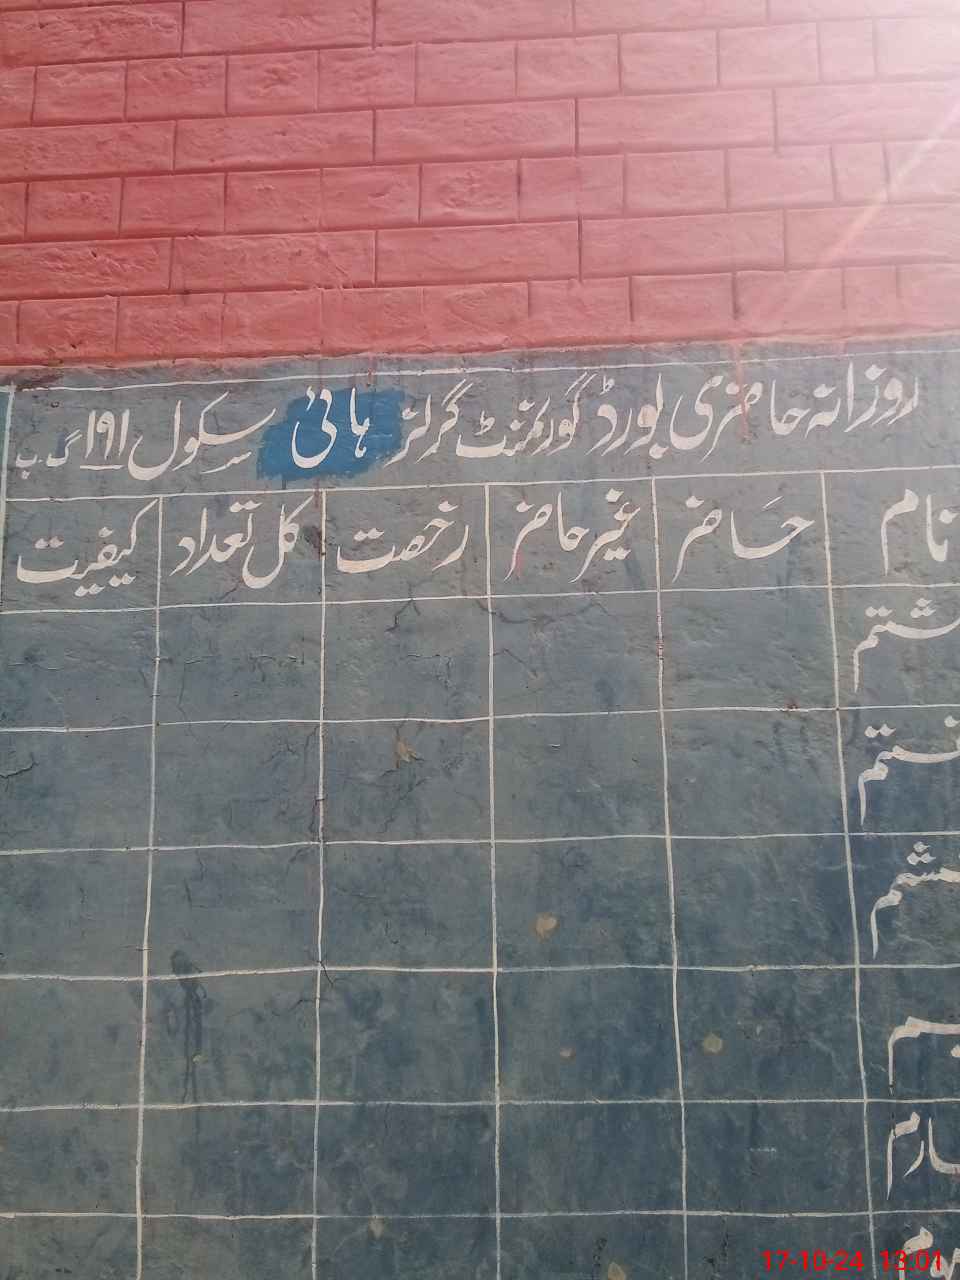 روزانہ حاضری بورڈ گورنمنٹ گرلز ہائی سکول 191 گ ب
نام حاضر غیر حاضر رخصت کل تعداد کیفیت
17-10-24 13:01